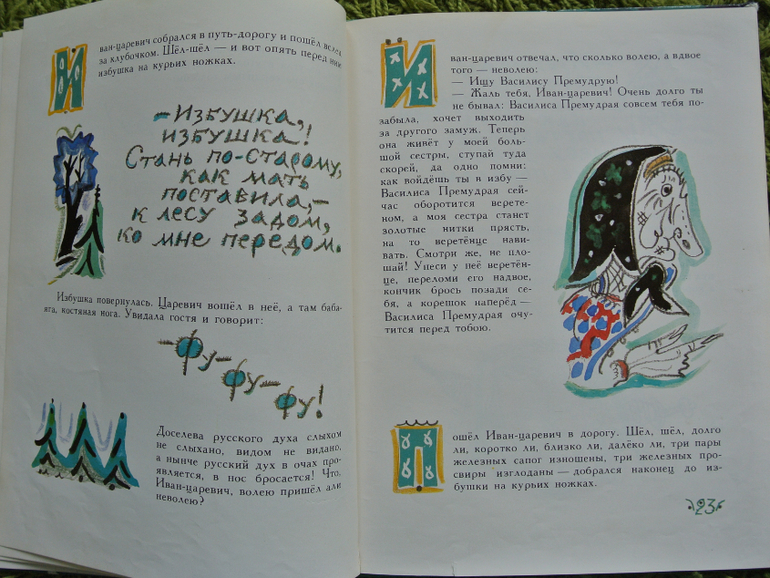 Иван-царевич собрался в путь-дорогу и пошёл вслед
за клубочком. Шёл-шёл — и вот опять перед ним
избушка на курьих ножках.
— Избушка,
избушка!
Стань по-старому,
как мать
поставила,—
к лесу задом,
ко мне передом.
Избушка повернулась. Царевич вошёл в неё, а там баба-
яга, костяная нога. Увидала гостя и говорит:
—Фу—
фу—
фу!
Доселева русского духа слыхом
не слыхано, видом не видано,
а нынче русский дух в очах про-
является, в нос бросается! Что,
Иван-царевич, волею пришёл али
неволею?
Иван-царевич отвечал, что сколько волею, а вдвое
того — неволею:
— Ищу Василису Премудрую!
— Жаль тебя, Иван-царевич! Очень долго ты
не бывал: Василиса Премудрая совсем тебя по-
забыла, хочет выходить
за другого замуж. Теперь
она живёт у моей боль-
шой сестры, ступай туда
скорей, да одно помни:
как войдёшь ты в избу —
Василиса Премудрая сей-
час оборотится верете-
ном, а моя сестра станет
золотые нитки прясть,
на то веретёнце нави-
вать. Смотри же, не пло-
шай! Унеси у неё веретён-
це, переломи его надвое,
кончик брось позади се-
бя, а корешок наперёд —
Василиса Премудрая очу-
тится перед тобою.
Пошёл Иван-царевич в дорогу. Шёл, шёл, долго
ли, коротко ли, близко ли, далёко ли, три пары
железных сапог изношены, три железных про-
свиры изглоданы — добрался наконец до из-
бушки на курьих ножках.
23